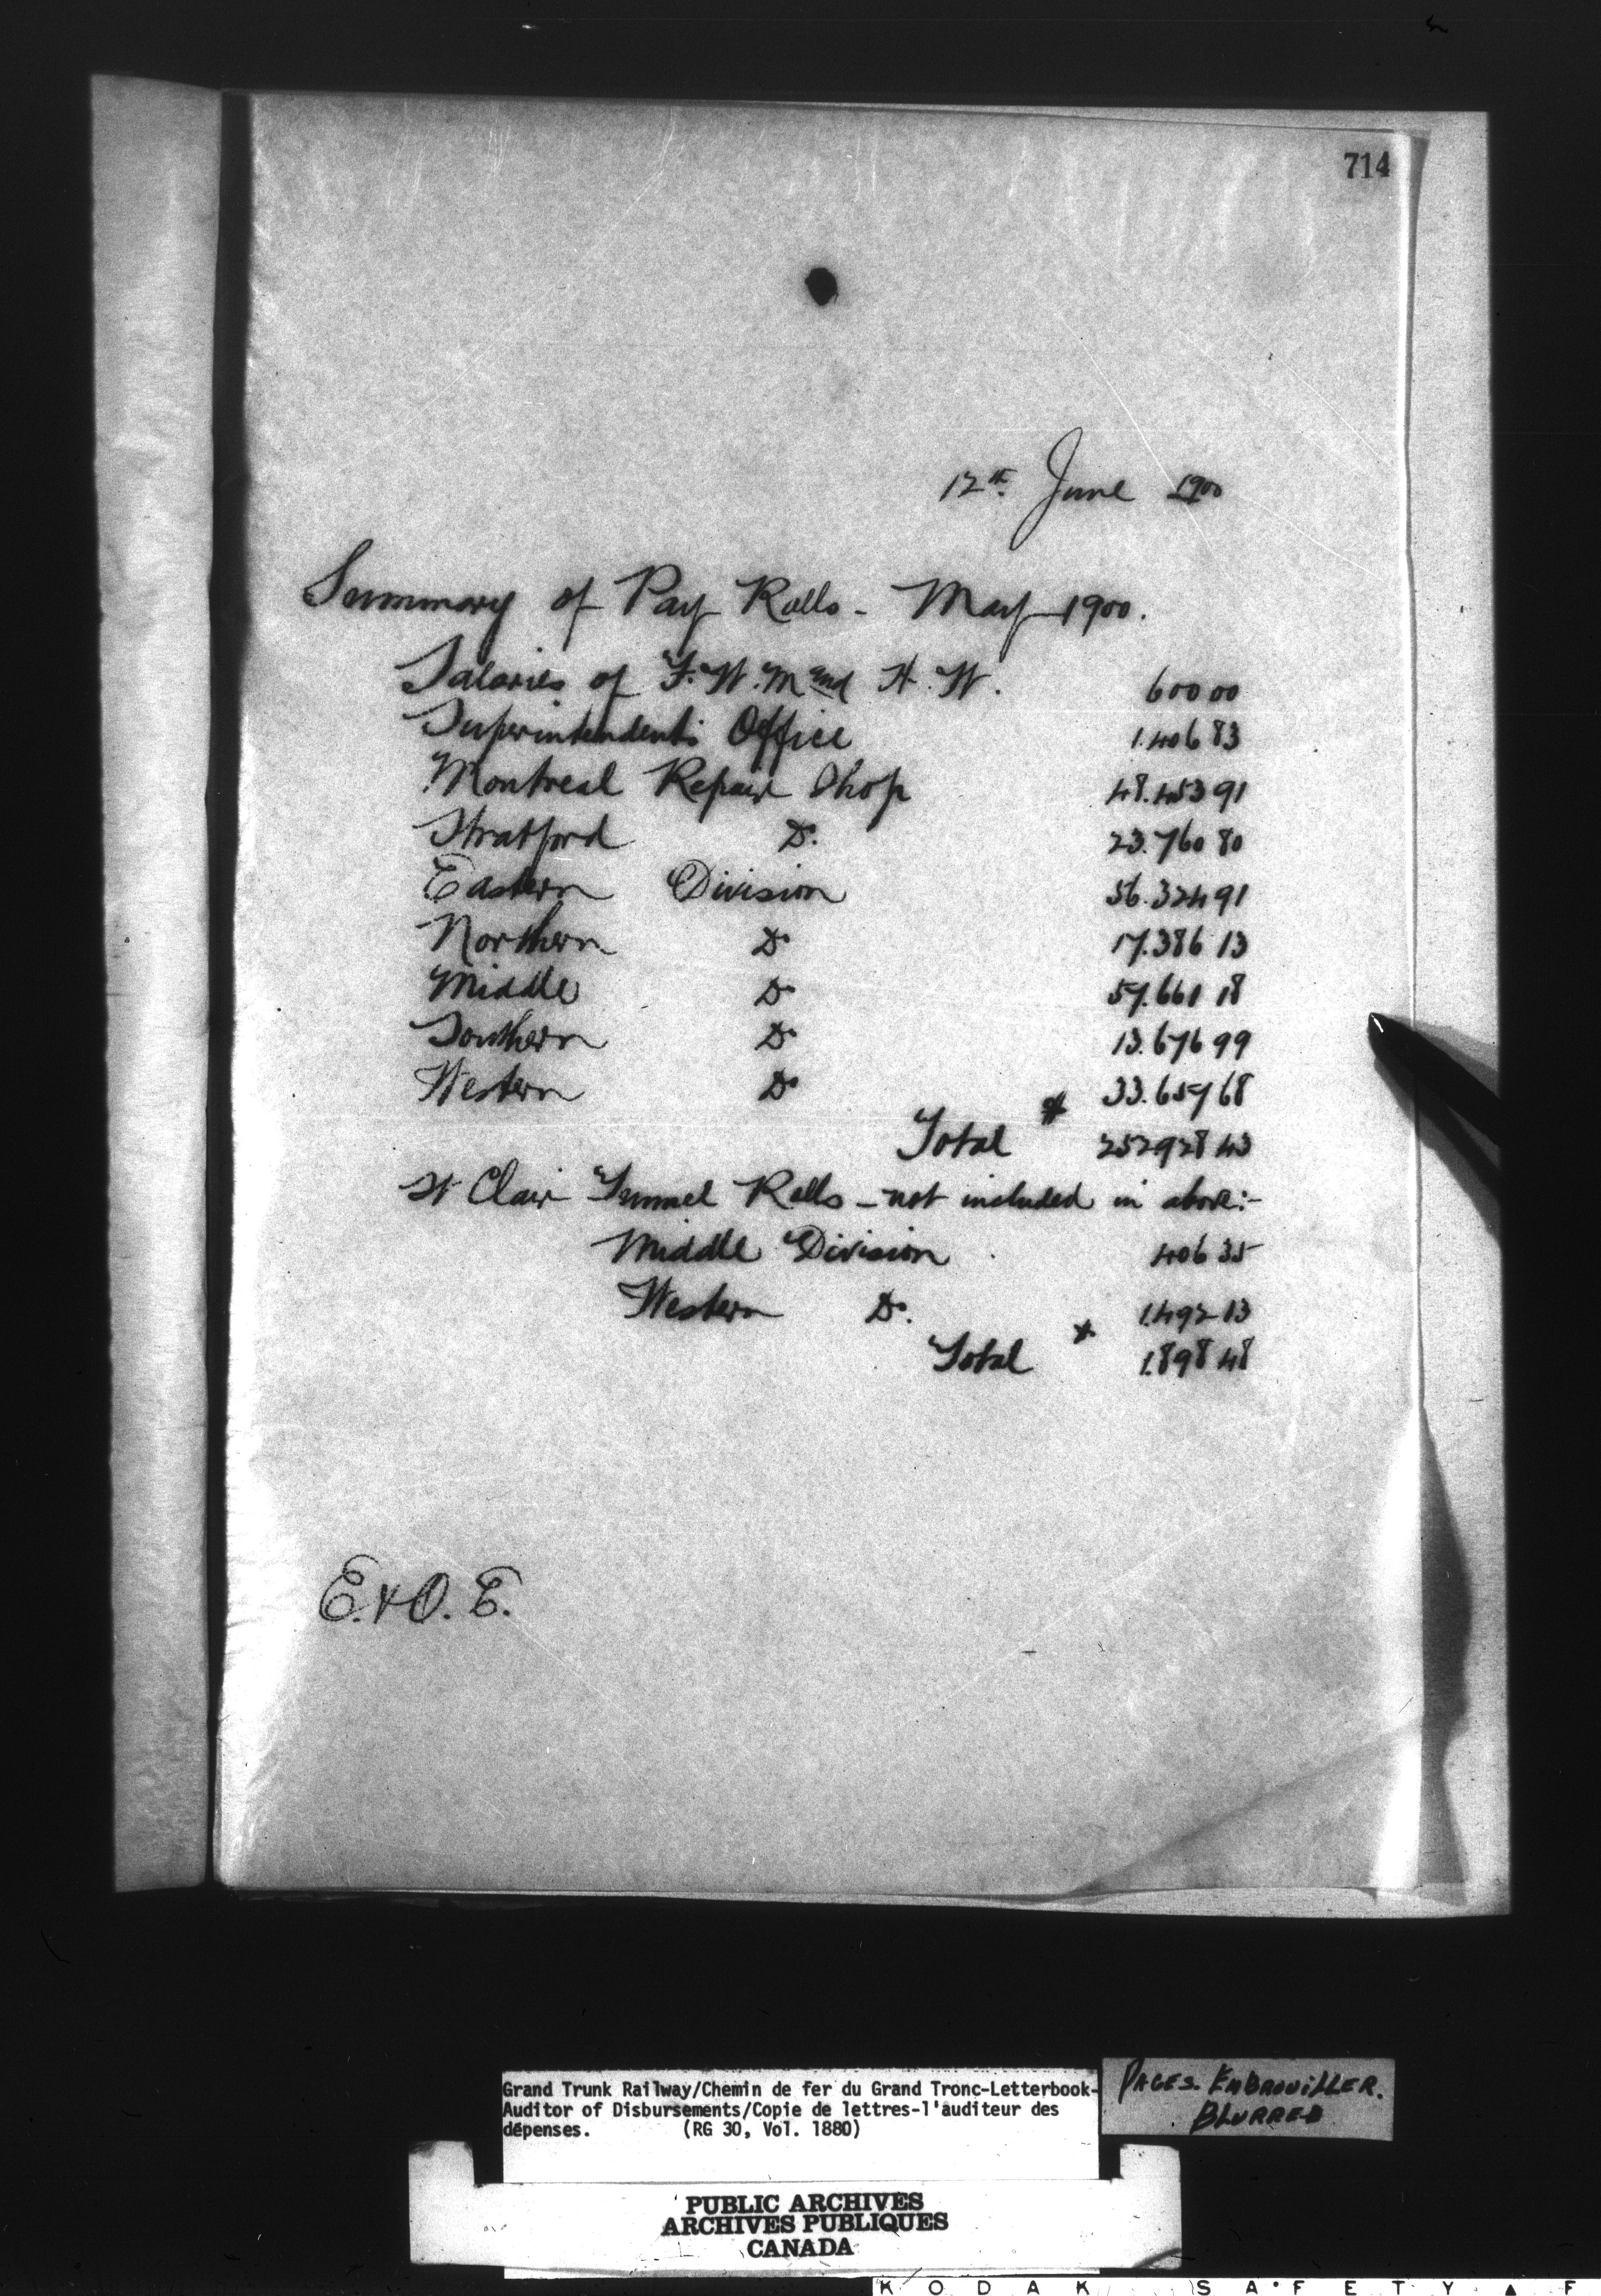 714
12th June 1900
Summary of Pay Rolls - May 1900.
Salaries of F. W. M and H. W. 600 00
Superintendents Office 1.406 83
Montreal Repair Shop 48.453 91
Stratford Do. 23.760 80
Eastern Division 56.324 91
Northern Do 17.386 13
Middle Do 57.661 18
Southern Do 13.676 99
Western Do 33.657 68
Total $ 252928 43
St Clair Tunnel Rolls - not included in above:-
Middle Division 406 35
Western Do. 1.492 13
Total $ 1.898 48
E. & O. E.
Grand Trunk Railway/Chemin de fer du Grand Tronc-Letterbook-
Auditor of Disbursements/Copie de lettres-l'auditeur des
dépenses. (RG 30, Vol. 1880)
PAGES. EMBROUILLER.
BLURRED
PUBLIC ARCHIVES
ARCHIVES PUBLIQUES
CANADA
KODAK SAFETY F